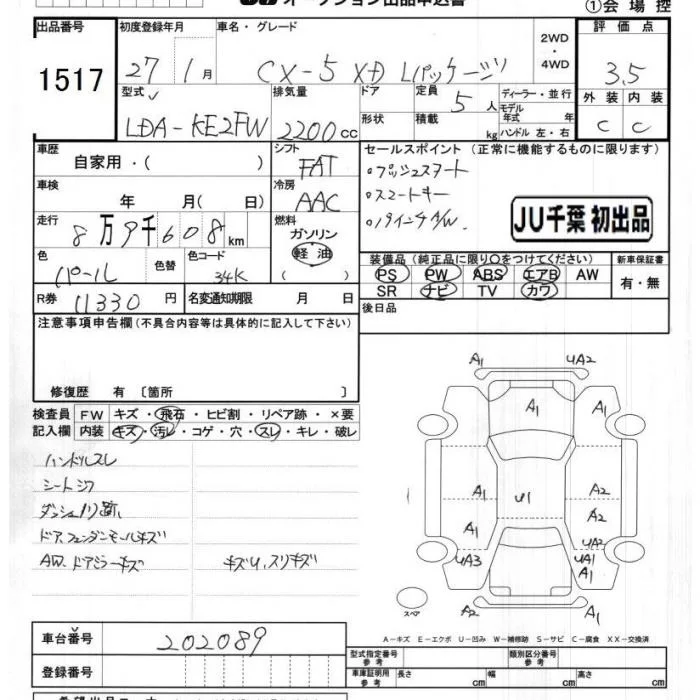 オークション出品申込書
①会場控
出品番号 初度登録年月 車名・グレード 2WD・4WD 評価点
1517 27 1月 CX-5 XD Lパッケージ 3.5
型式 排気量 ドア 定員 5人 ディーラー・並行 外装 内装
LDA-KE2FW 2200cc 形状 積載 kg モデル年式 年 C C
ハンドル 左・右
車歴 シフト セールスポイント (正常に機能するものに限ります)
自家用・( ) FAT ・プッシュスタート
車検 冷房 ・スマートキー
年 月( 日) AAC ・19インチA/W.
JU千葉 初出品
走行 燃料
8万9千608km ガソリン 軽油 ( )
装備品(純正品に限り○をつけてください) 新車保証書
色 色替 色コード PS PW ABS エアB AW 有・無
パール 34K SR ナビ TV カワ
R券 11330円 名変通知期限 月 日 後日品
注意事項申告欄(不具合内容等は具体的に記入して下さい)
修復歴 有 〔箇所 〕
検査員 FW キズ・飛石・ヒビ割・リペア跡・×要
記入欄 内装 キズ・汚レ・コゲ・穴・スレ・キレ・破レ
ハンドルスレ
シートシワ
ダッシュノリ跡
ドア、フェンダーモールキズ
AW. ドアミラーキズ キズU,スリキズ
A1 UA2
A1 A1
A1 U1 A2
A1 A2
UA2
UA3 UA1
A1
スペア A2 A1
A-キズ E-エクボ U-凹み W-補修跡 S-サビ C-腐食 XX-交換済
車台番号 202089
型式指定番号 参考 類別区分番号 参考
登録番号 車庫証明用 参考 長さ cm 幅 cm 高さ cm